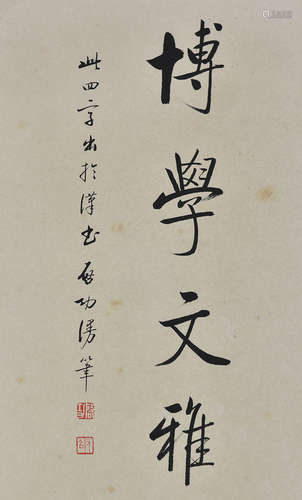 博學文雅
此四字出於漢書啟功漫筆